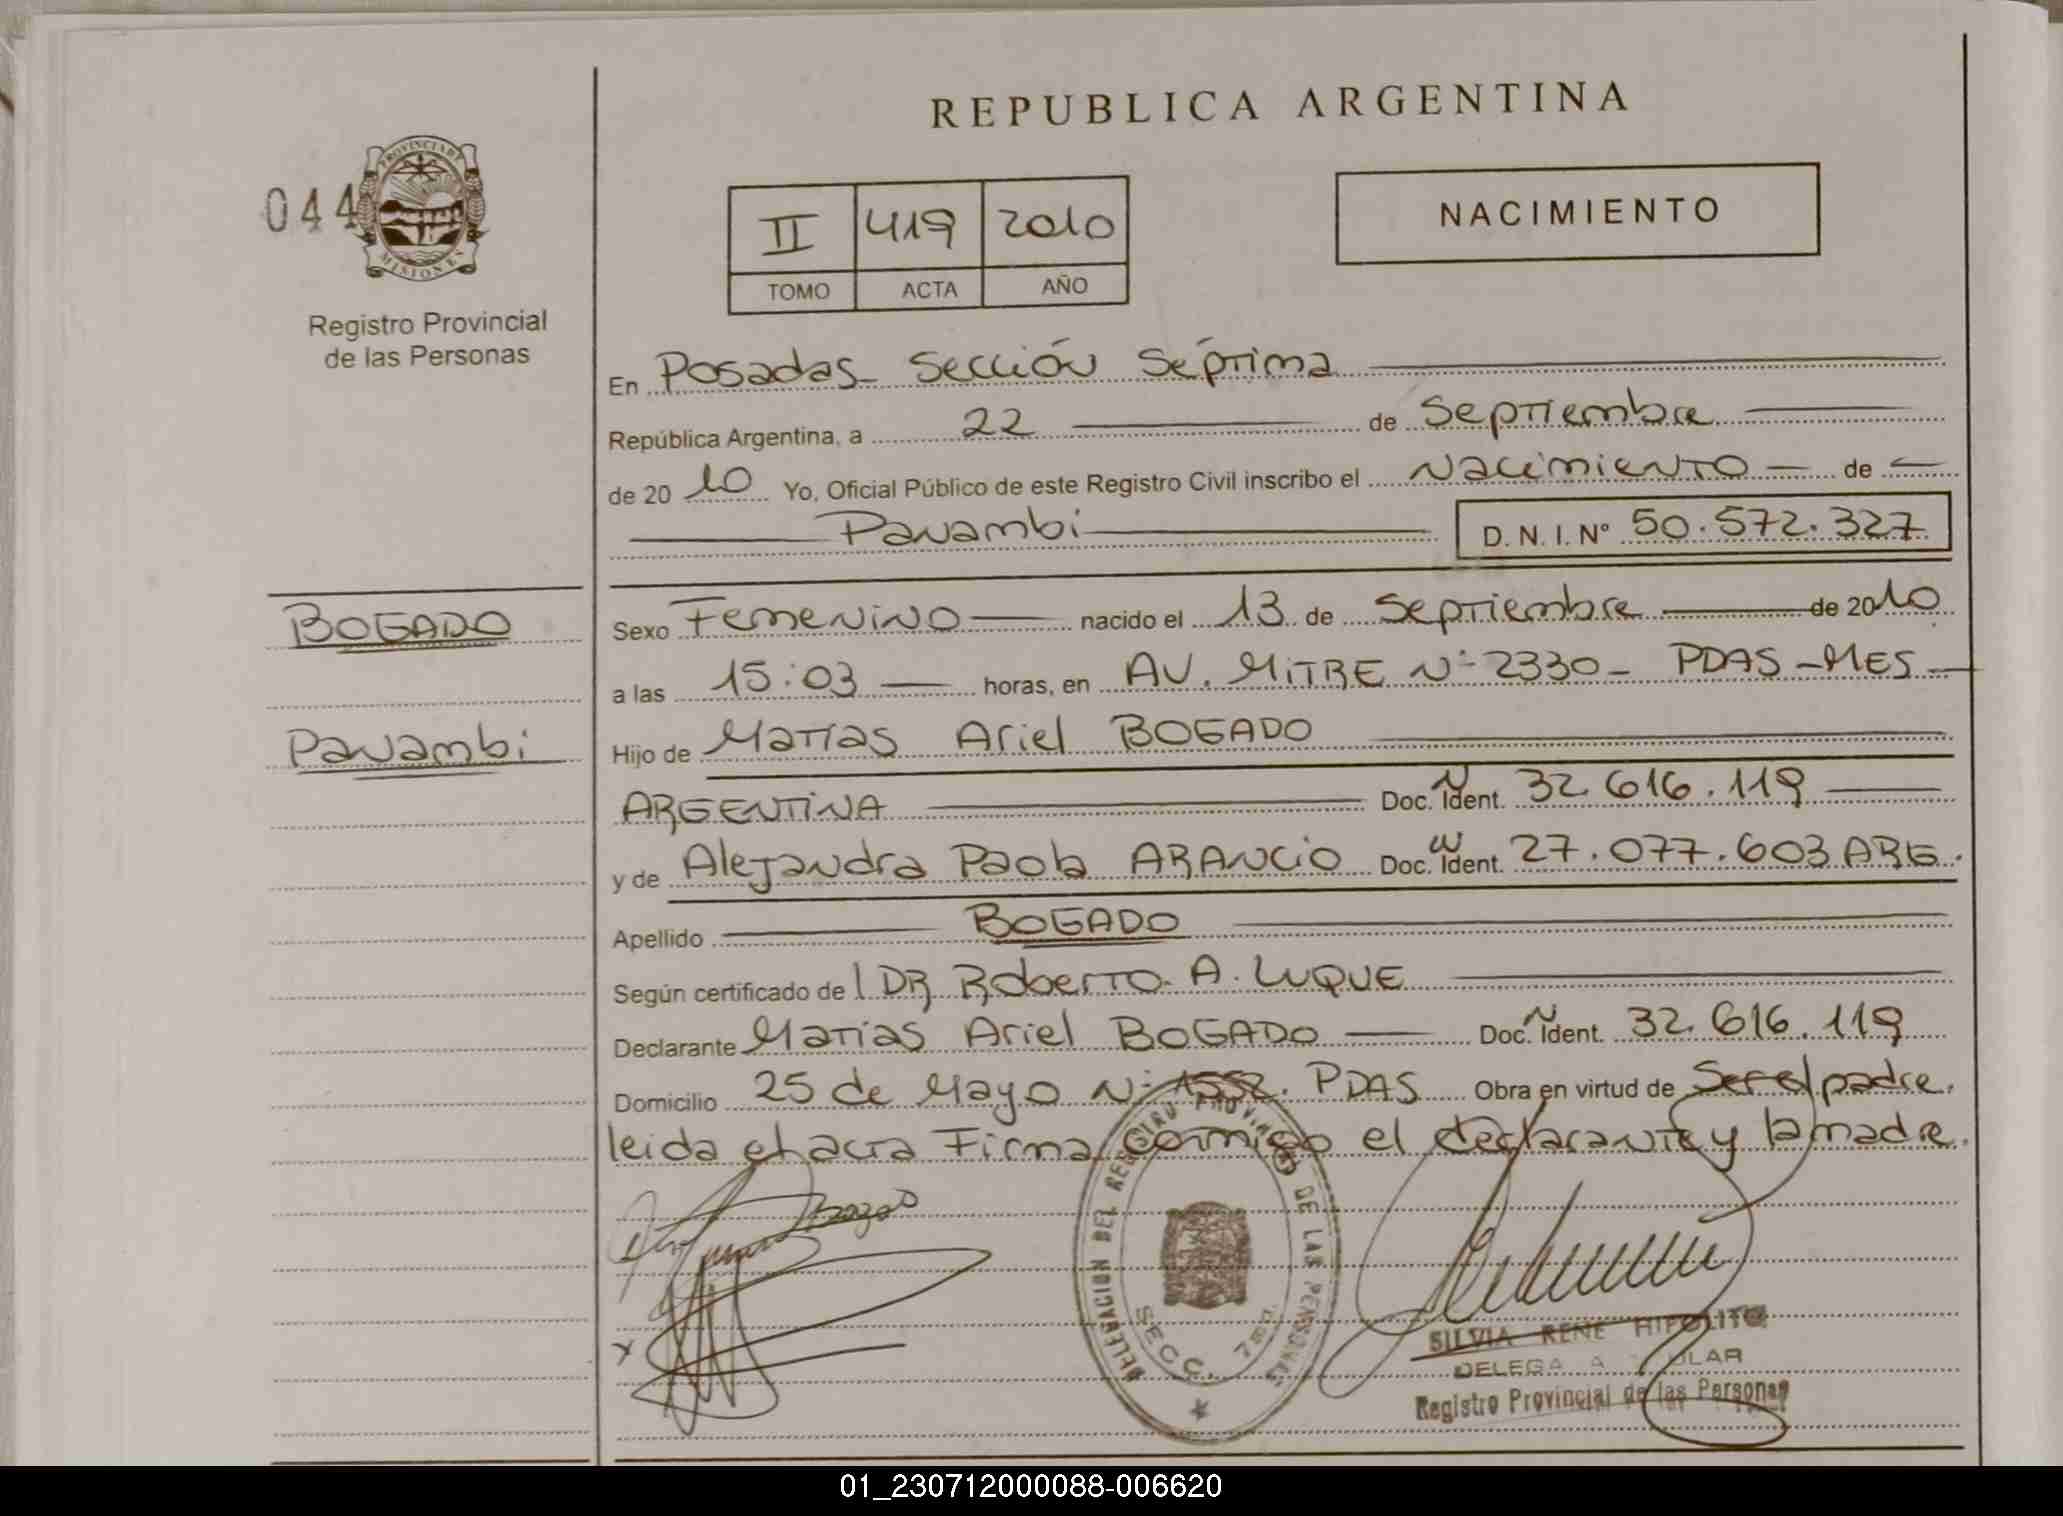 REPUBLICA ARGENTINA
044
PROVINCIA DE
MISIONES
Registro Provincial
de las Personas
II 419 2010
TOMO ACTA AÑO
NACIMIENTO
En Posadas- Sección Séptima
República Argentina, a 22 de Septiembre
de 20 10 Yo, Oficial Público de este Registro Civil inscribo el Nacimiento de
Panambi D. N. I. Nº 50.572.327
BOGADO
Panambi
Sexo Femenino nacido el 13 de Septiembre de 2010
a las 15:03 horas, en AV. MITRE Nº 2330- PDAS-MES
Hijo de Matías Ariel BOGADO
ARGENTINA Doc. N Ident. 32.616.119
y de Alejandra Paola ARANCIO Doc. N Ident. 27.077.603 ARG.
Apellido BOGADO
Según certificado de l DR Roberto A. LUQUE
Declarante Matías Ariel BOGADO Doc. N Ident. 32.616.119
Domicilio 25 de Mayo Nº 1552. PDAS Obra en virtud de Ser el padre.
leida el acta Firma conmigo el declarante y la madre.
DELEGACION DEL REGISTRO PROVINCIAL DE LAS PERSONAS
SECC. 7
SILVIA RENE HIPOLITO
DELEGA A ULAR
Registro Provincial de las Personas
01_230712000088-006620